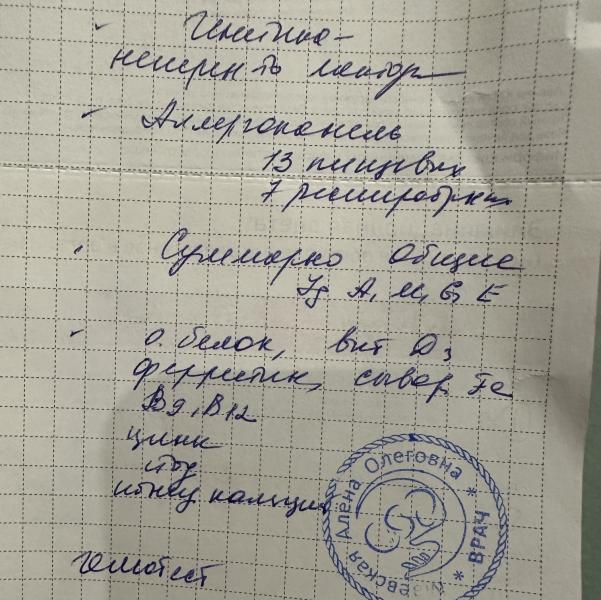 Генетика -
непер-ть лактоз
Аллергопанель
13 пищевых
7 респираторных
Суммарно общие
Ig A, M, G, E
о. белок, вит D3
ферритин, сывор. Fe
B9, B12
цинк
йод
кальций
Гемотест
Алёна Олеговна * ВРАЧ *